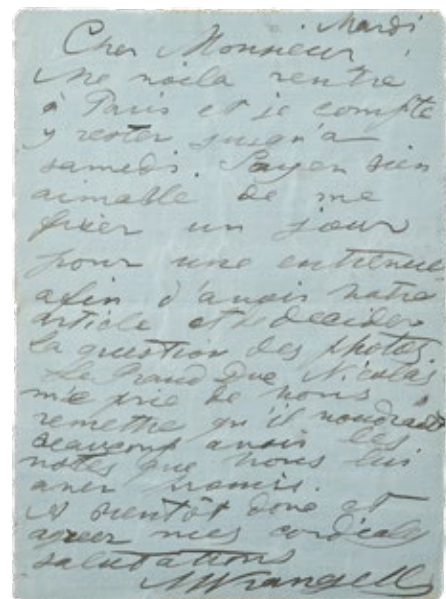 Mardi
Cher Monsieur,
Me voila rentré
à Paris et je compte
y rester jusqu'a
samedi. Soyez bien
aimable de me
fixer un jour
pour une entrevue
afin d'avoir votre
article et de decider
la question des photos.
Le Grand Duc Nicolas
m'a prié de vous
remettre qu'il voudrait
beaucoup avoir les
notes que vous lui
avez promis.
A bientôt donc et
agreer mes cordiales
salutations
Wrangell